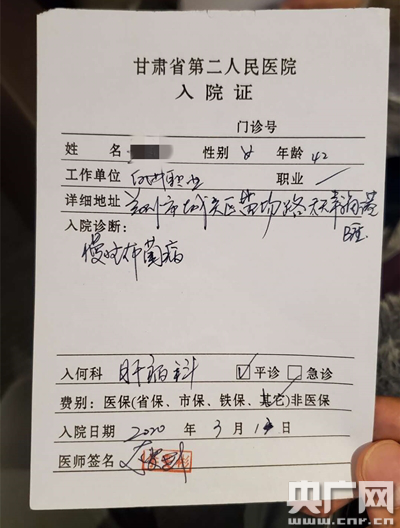 甘肃省第二人民医院
入院证
门诊号
姓名 性别 女 年龄 42
工作单位 职业 /
详细地址 兰州市城关区
入院诊断:
慢性布菌病
入何科 肝病科 ☑平诊 □急诊
费别: 医保(省保、市保、铁保、其它)非医保
入院日期 2020 年 3 月 日
医师签名
央广网
www.cnr.cn